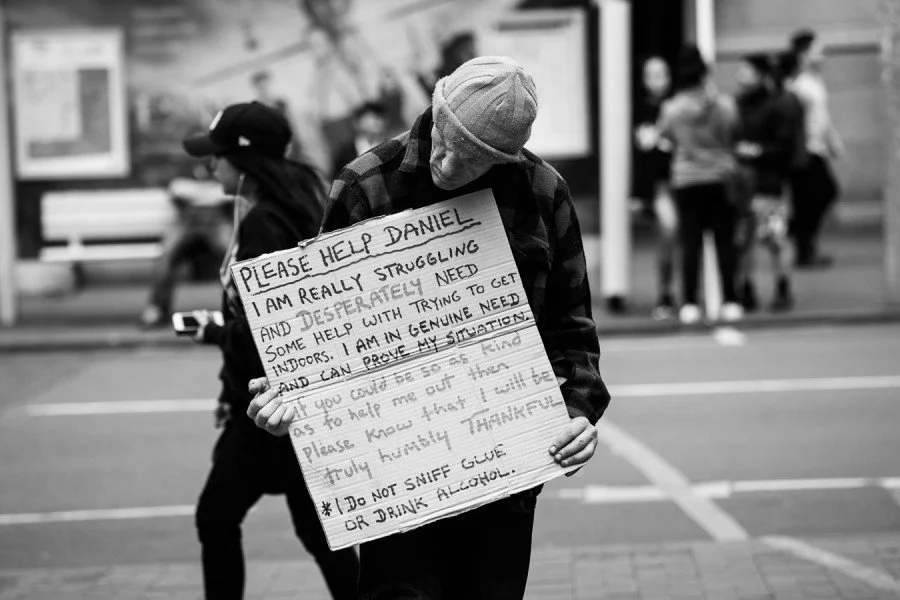 PLEASE HELP DANIEL
I AM REALLY STRUGGLING
AND DESPERATELY NEED
SOME HELP WITH TRYING TO GET
INDOORS. I AM IN GENUINE NEED
AND CAN PROVE MY SITUATION.
if you could be so as kind
as to help me out then
please know that I will be
truly humbly THANKFUL
*I DO NOT SNIFF GLUE
OR DRINK ALCOHOL.